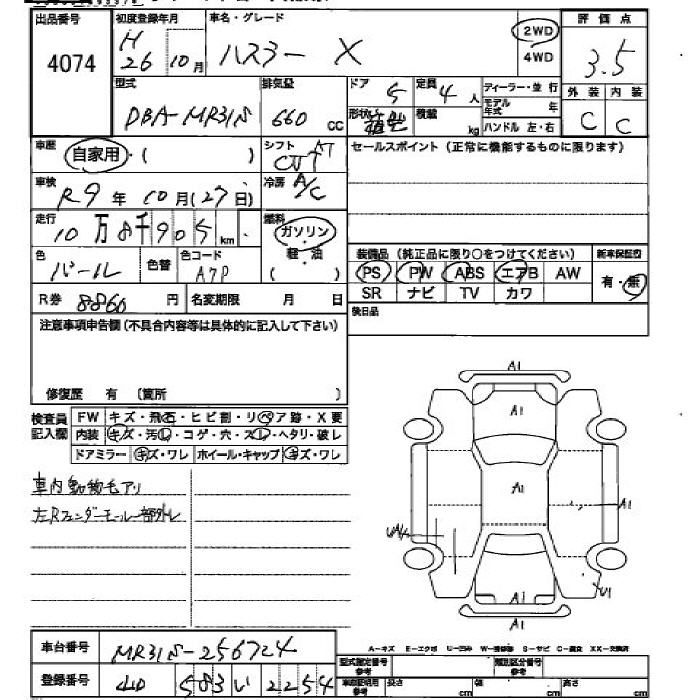 出品番号 初度登録年月 車名・グレード 2WD 4WD 評価点
4074 H 26 10月 ハスラー X 3.5
型式 排気量 ドア 定員 ディーラー・並行 外装 内装
DBA-MR31S 660 CC 5 4人 モデル年式 年 C C
形状 箱型 積載 kg ハンドル 左・右
車歴 自家用・( ) シフト AT CVT セールスポイント(正常に機能するものに限ります)
車検 R9年 10月(27日) 冷房 A/C
走行 10万8千905km 燃料 ガソリン・軽・油 ( )
色 パール 色替 色コード A7P 装備品(純正品に限り○をつけてください) 新車保証書
PS PW ABS エアB AW 有・無
SR ナビ TV カワ
R券 8860円 名変期限 月 日 後日品
注意事項申告欄(不具合内容等は具体的に記入して下さい)
修復歴 有 〔箇所 〕
検査員記入欄 FW キズ・飛石・ヒビ割・リペア跡・X要
内装 キズ・汚れ・コゲ・穴・スレ・ヘタリ・破レ
ドアミラー キズ・ワレ ホイール・キャップ キズ・ワレ
車内動物毛アリ
左Rフェンダーモール一部外レ
A1
A1
A1
A1
U1
A1
A1
A-キズ E-エクボ U-凹み W-補修跡 S-サビ C-腐食 XX-交換済
車台番号 MR31S-256724
型式指定番号 参考 類別区分番号 参考
登録番号 583 い 2254
車庫証明用 参考 長さ cm 幅 cm 高さ cm